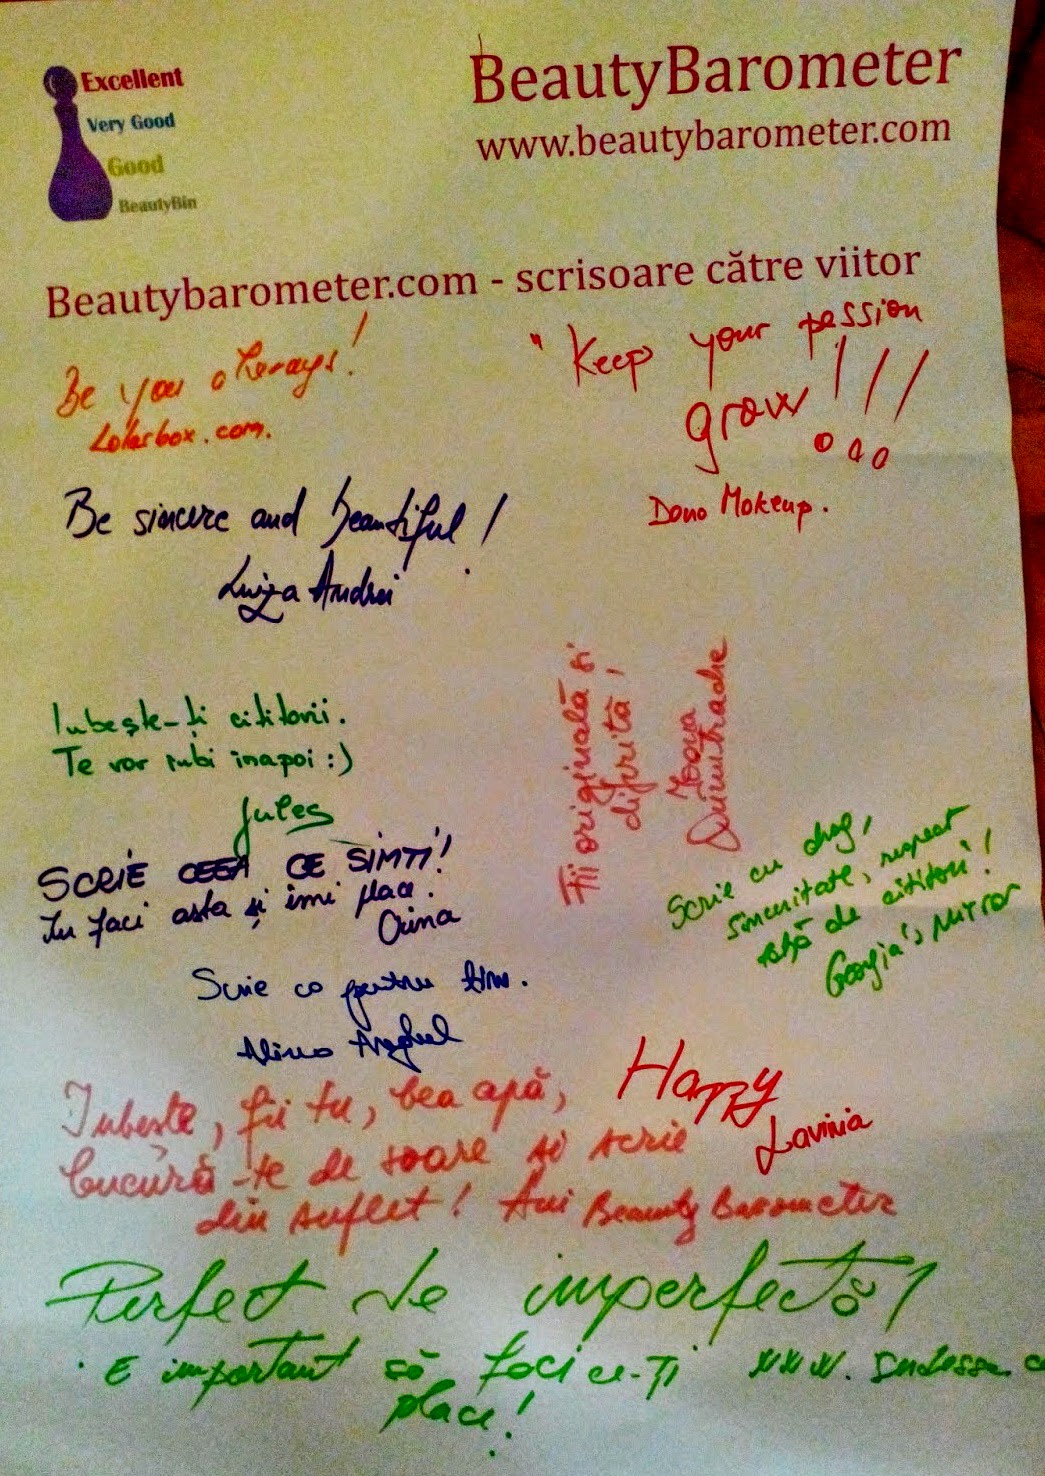 Excellent
Very Good
Good
BeautyBin
BeautyBarometer
www.beautybarometer.com
Beautybarometer.com - scrisoare către viitor
Be you always!
"Keep your passion
grow!!!
Dana Makeup.
Be sincere and beautiful!
Luiza Andrei
Iubește-ți cititorii.
Te vor iubi inapoi :)
Jules
Fii originală si
diferită!
Ioana
Dumitrache
SCRIE CEEA CE SIMTI!
Tu faci asta și imi place.
Crina
Scrie cu drag,
sinceritate, respect
față de cititori!
Georgia's Mirror
Scrie ca pentru tine.
Anghel
Happy
Lavinia
Iubeste, fii tu, bea apă,
bucură-te de soare si scrie
din suflet! Ani Beauty Barometer
Perfect de imperfectă!
E important să faci ce-ți
place!
www.